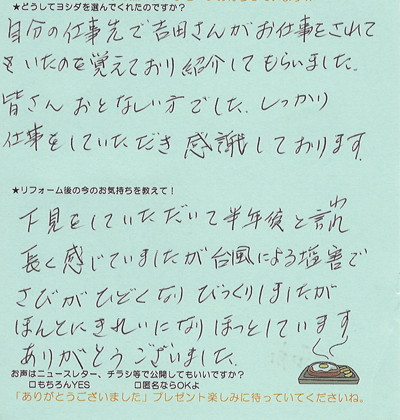 ★どうしてヨシダを選んでくれたのですか?
自分の仕事先で吉田さんがお仕事をされて
をいたのを覚えており紹介してもらいました。
皆さんおとなしい方でした。しっかり
仕事をしていただき感謝しております。
★リフォーム後の今のお気持ちを教えて!
下見をしていただいて半年後と言われ
長く感じていましたが台風による塩害で
さびがひどくなりびっくりしましたが
ほんとにきれいになりほっとしています
ありがとうございました。
お声はニュースレター、チラシ等で公開してもいいですか?
□もちろんYES □匿名ならOKよ
「ありがとうございました」プレゼント楽しみに待っていてくださいね。